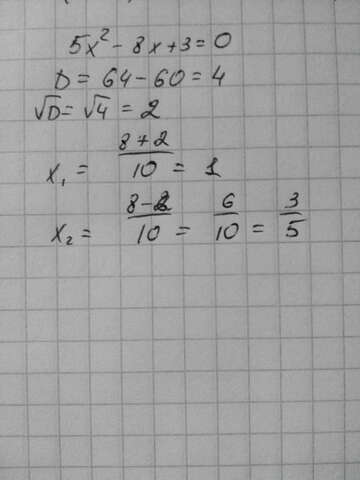 5x² - 8x + 3 = 0
D = 64 - 60 = 4
√D = √4 = 2
x₁ = (8 + 2)/10 = 1
x₂ = (8 - 2)/10 = 6/10 = 3/5